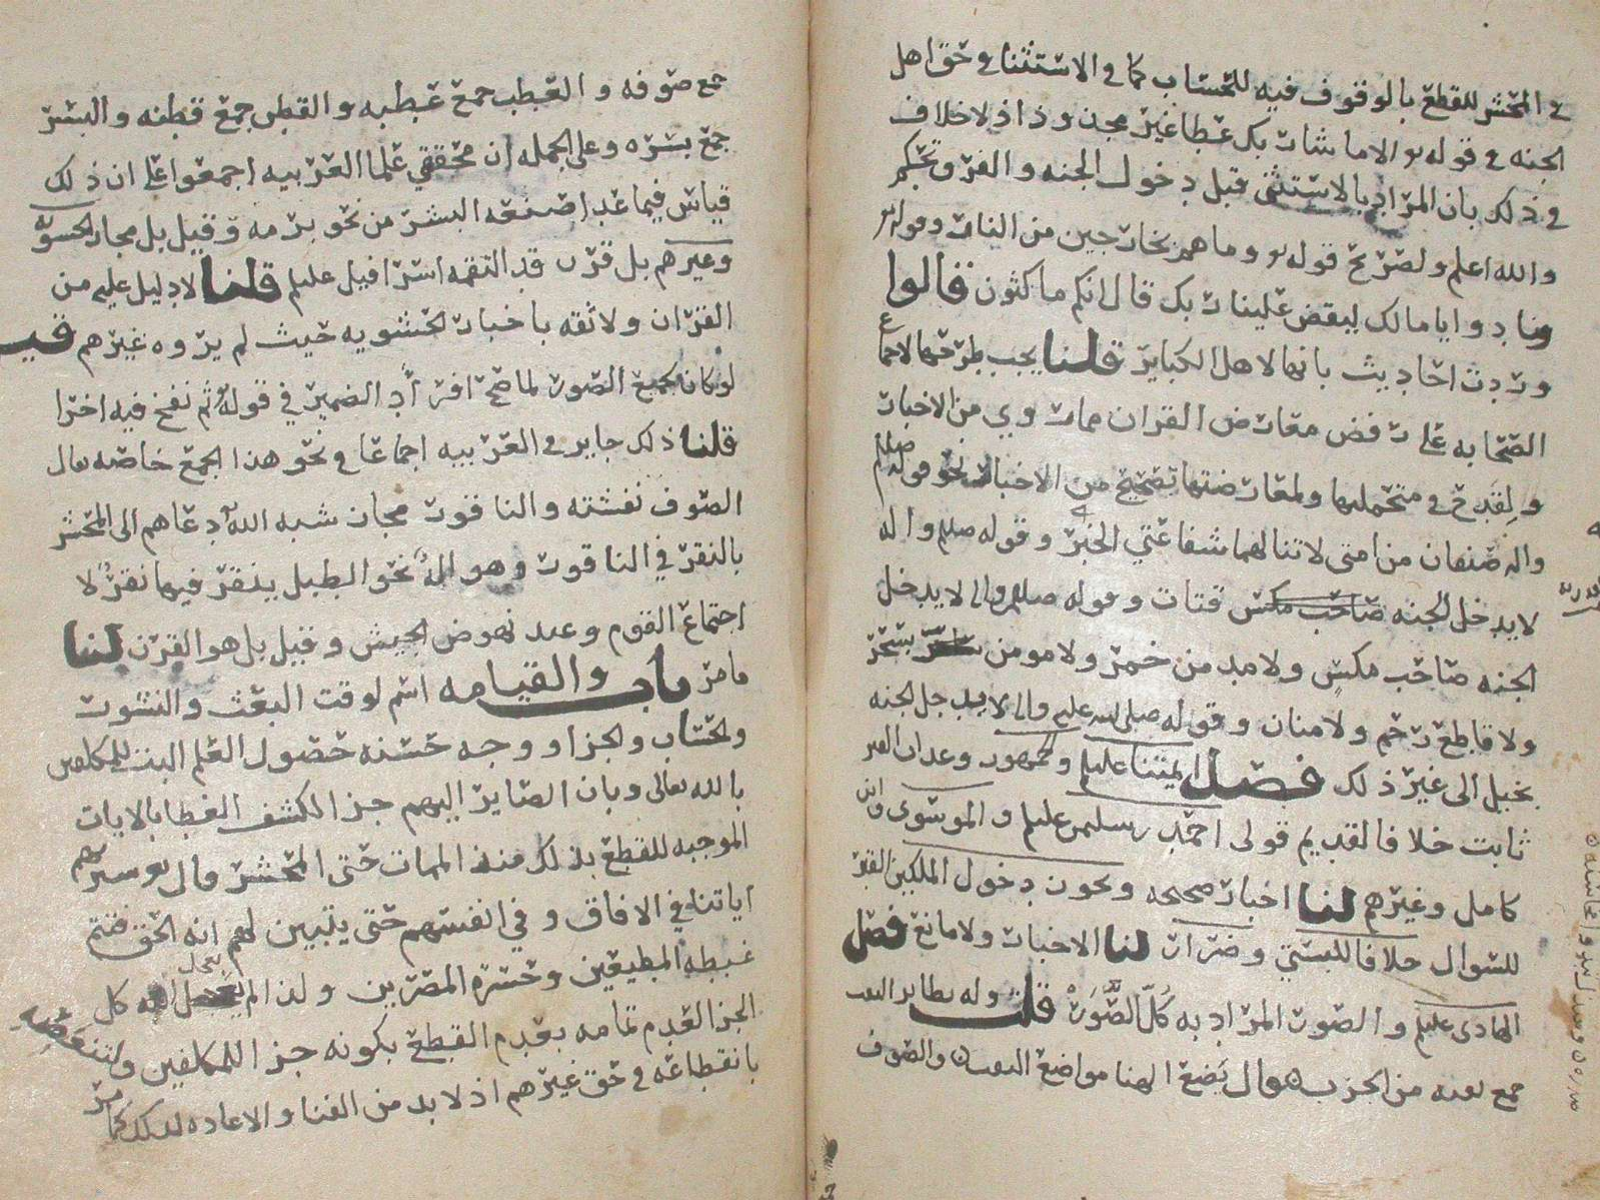 في المحشر للقطع بالوقوف فيه للحساب كما في الاستثنا في حق اهل
الجنه في قوله الا ما شا ربك عطا غير مجذوذ اذ لا خلاف
في ذلك بان المراد بالاستثنى قبل دخول الجنه والفرق تحكم
والله اعلم ولصريح قوله وما هم بخارجين من النار وقوله
ونادوا يا مالك ليقض علينا ربك قال انكم ماكثون قالوا
وردت احاديث بانها لاهل الكباير قلنا يجب طرحها لاجماع
الصحابه على رفض معارض القران مما روي من الاخبار
ولقدح في متحمليها ولمعارضتها بصحيح من الاخبار نحو قوله صلعم
واله صنفان من امتي لا تنالهما شفاعتي الخبر وقوله صلعم واله
لا يدخل الجنه قتات وقوله صلعم واله لا يدخل
الجنه صاحب مكس ولا مدمن خمر ولا مومن بسحر
ولا قاطع رحم ولا منان وقوله صلى الله عليه واله لا يدخل الجنه
بخيل الى غير ذلك فصل ايمتنا عليلم والجمهور وعذاب القبر
ثابت خلافا لقديم قولي احمد بن سليمن عليلم والموسوي وابن
كامل وغيرهم لنا اخبار صحيحه ويكون دخول الملكين القبر
للسوال خلافا للبستي وضرار لنا الاخبار ولا مانع فصل
الهادي عليلم والصور المراد به كل الصور قلت وله نظاير
جمع من الحزب يضع الهنا مواضع النقب والصوف
جمع صوفه والعطب جمع عطبه والقطن جمع قطنه والبسر
جمع بسره وعلى الجمله ان محققي علما العربيه اجمعوا على ان ذلك
قياس فيما عدا صنعه البشر من نحو برمه وقيل بل مجاز الحشويه
وغيرهم بل قرن قد التقمه اسرافيل عليلم قلنا لا دليل عليه من
القران ولا ثقه باخبار الحشويه حيث لم يروه غيرهم قيل
لو كان لجميع الصور لما صح افراد الضمير في قوله ثم نفخ فيه اخرا
قلنا ذلك جايز في العربيه اجماعا في نحو هذا الجمع خاصه يقال
الصوف نفشته والناقور مجاز شبه الله دعاهم الى المحشر
بالنقر في الناقور وهو اله نحو الطبل ينقر فيها نقرا لا
اجتماع القوم وعند نهوض الجيش وقيل بل هو القرن لنا
ما مر باب والقيامه اسم لوقت البعث والنشور
والحساب والجزا ووجه حسنه حصول العلم البت للمكلفين
بالله تعالى وبان الصاير اليهم جزا لكشف الغطا بالايات
الموجبه للقطع بذلك منذ الممات حتى المحشر قال سنريهم
اياتنا في الافاق وفي انفسهم حتى يتبين لهم انه الحق فتتم
غبطه المطيعين وحسرة المصرين ولذا لم كل
الجزا لعدم تمامه بعدم القطع بكونه جزا للمكلفين ولتنغصه
بانقطاعه في حق غيرهم اذ لا بد من الفنا والاعاده لذلك كما مر